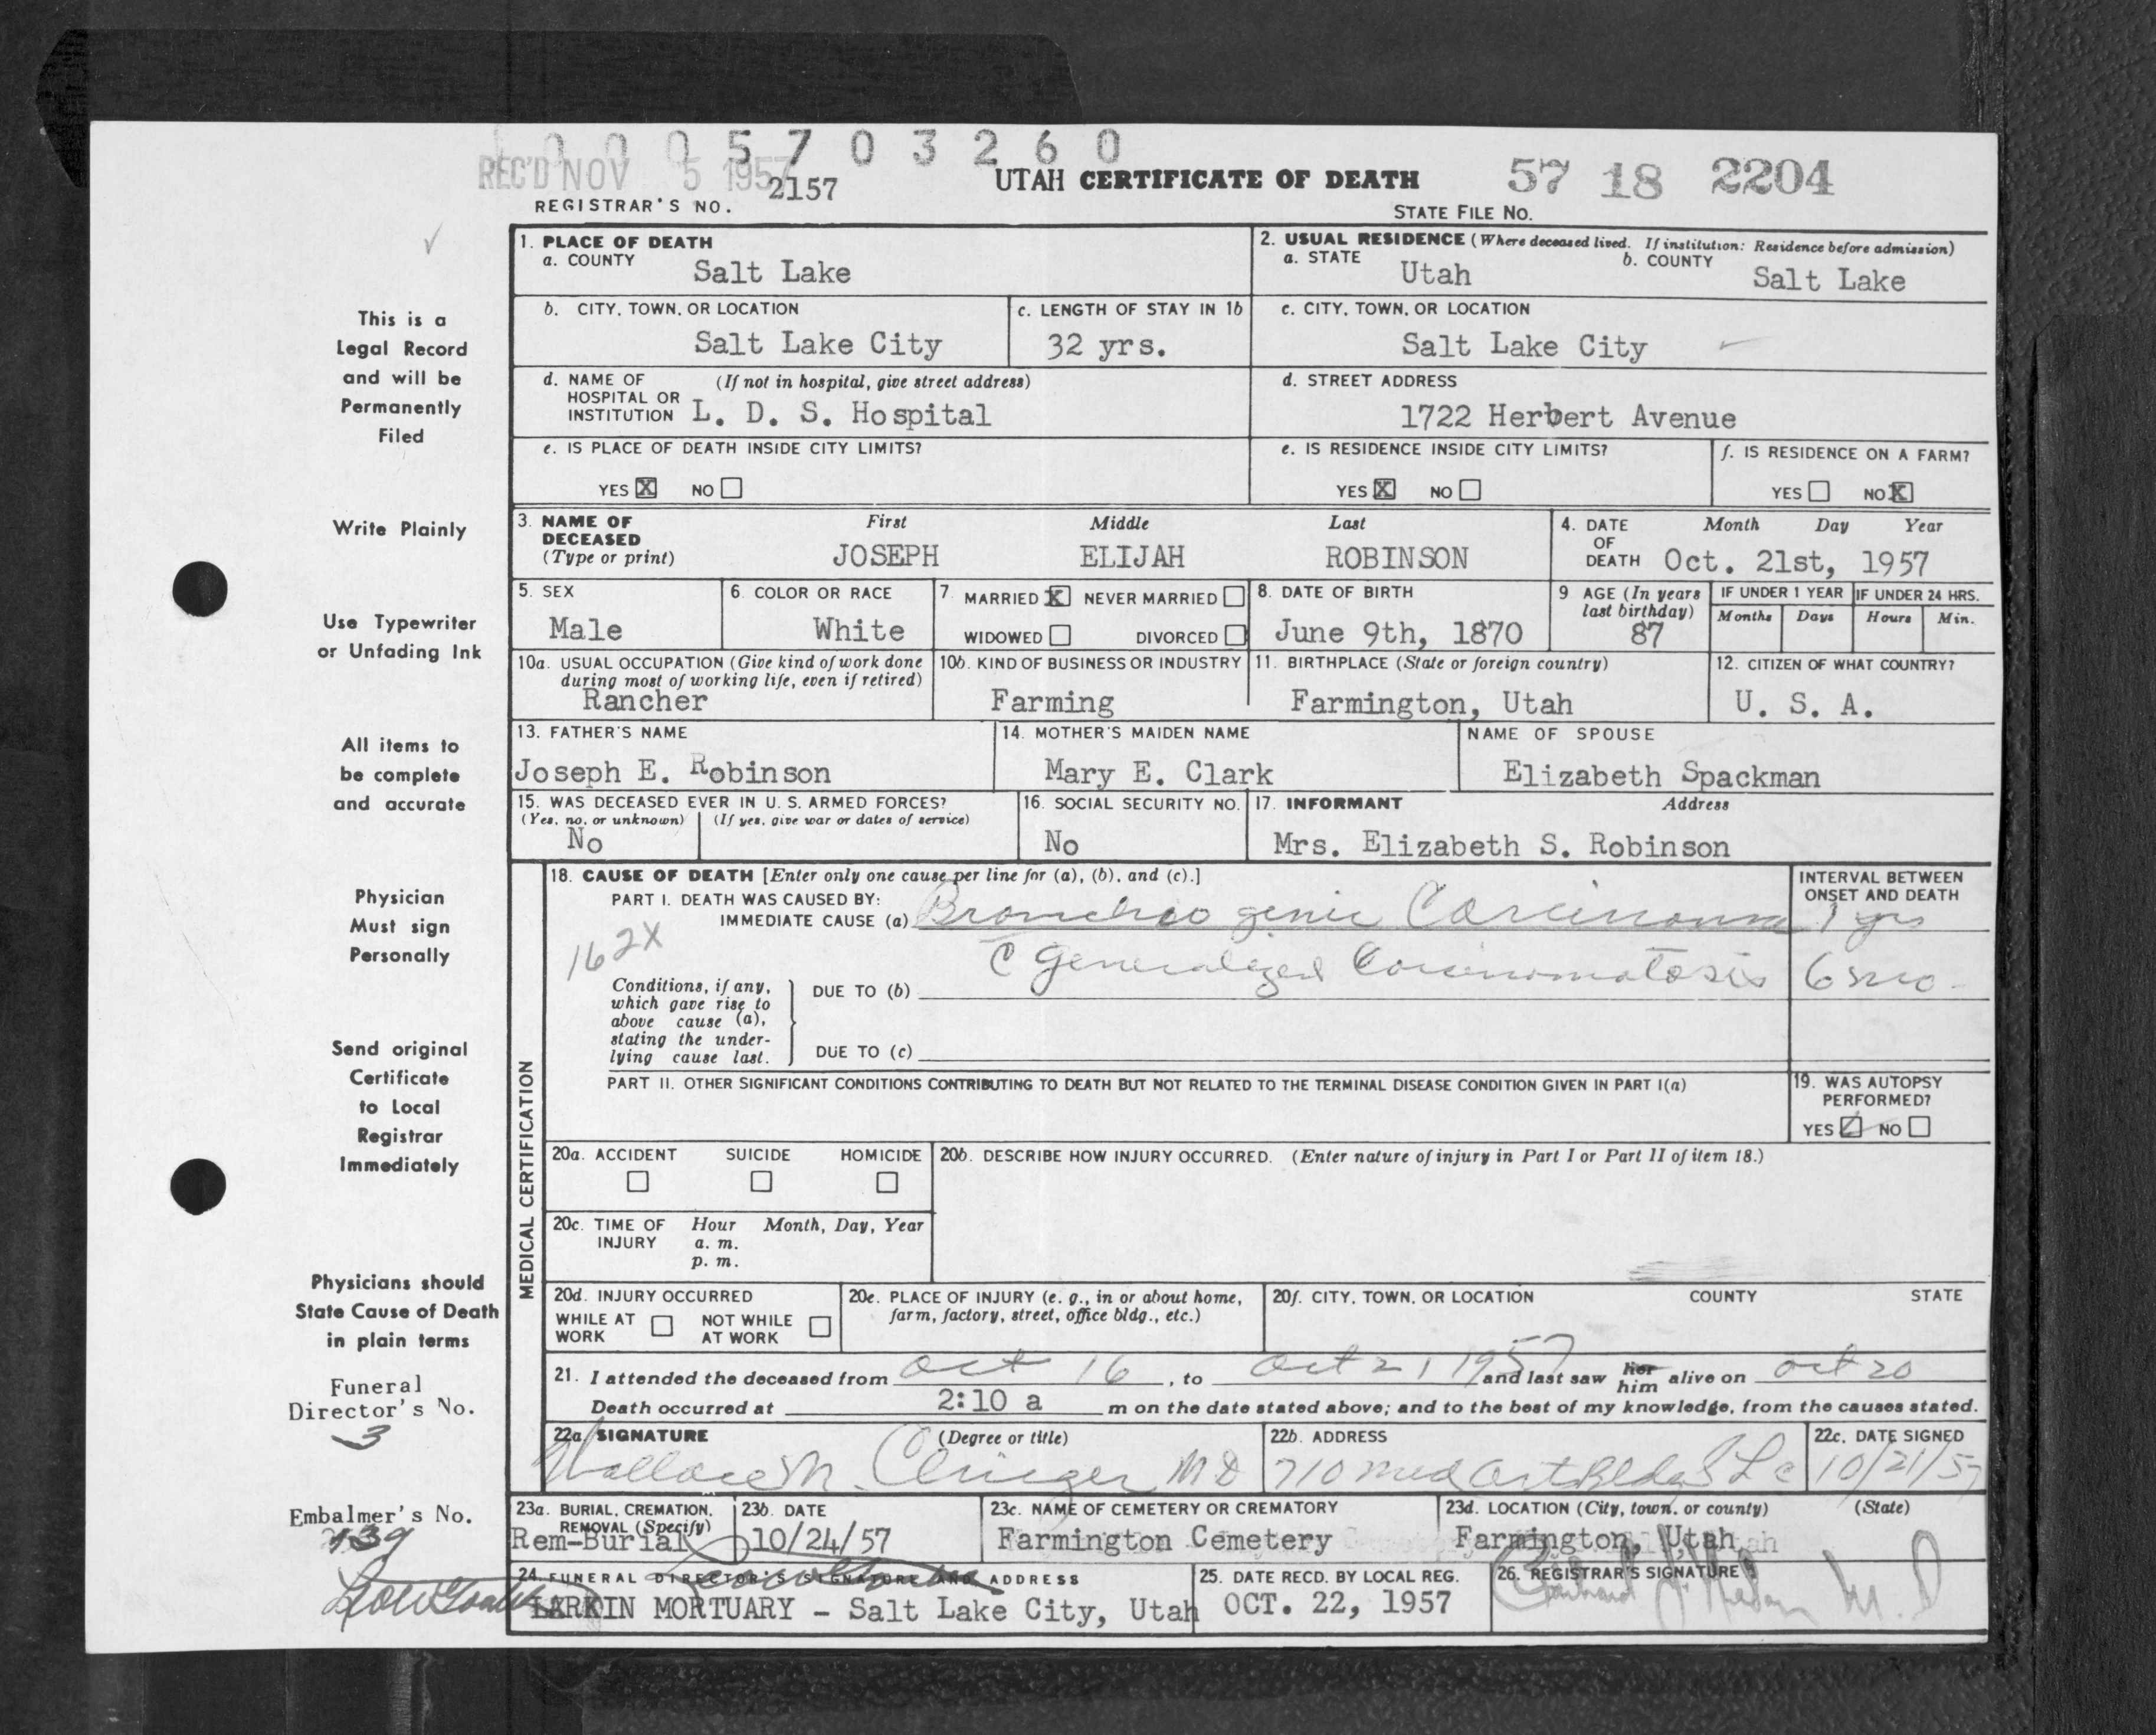 0 0 0 5 7 0 3 2 6 0
REC'D NOV 5 1957
2157
REGISTRAR'S NO.
UTAH CERTIFICATE OF DEATH
57 18 2204
STATE FILE NO.
This is a
Legal Record
and will be
Permanently
Filed
Write Plainly
Use Typewriter
or Unfading Ink
All items to
be complete
and accurate
Physician
Must sign
Personally
Send original
Certificate
to Local
Registrar
Immediately
Physicians should
State Cause of Death
in plain terms
Funeral
Director's No.
3
Embalmer's No.
139
1. PLACE OF DEATH
a. COUNTY
Salt Lake
2. USUAL RESIDENCE (Where deceased lived. If institution: Residence before admission)
a. STATE
Utah
b. COUNTY
Salt Lake
b. CITY, TOWN, OR LOCATION
Salt Lake City
c. LENGTH OF STAY IN 1b
32 yrs.
c. CITY, TOWN, OR LOCATION
Salt Lake City
d. NAME OF (If not in hospital, give street address)
HOSPITAL OR
INSTITUTION L. D. S. Hospital
d. STREET ADDRESS
1722 Herbert Avenue
e. IS PLACE OF DEATH INSIDE CITY LIMITS?
YES X NO
e. IS RESIDENCE INSIDE CITY LIMITS?
YES X NO
f. IS RESIDENCE ON A FARM?
YES NO X
3. NAME OF
DECEASED
(Type or print)
First Middle Last
JOSEPH ELIJAH ROBINSON
4. DATE
OF
DEATH
Month Day Year
Oct. 21st, 1957
5. SEX
Male
6. COLOR OR RACE
White
7. MARRIED X NEVER MARRIED
WIDOWED DIVORCED
8. DATE OF BIRTH
June 9th, 1870
9 AGE (In years
last birthday)
87
IF UNDER 1 YEAR
Months Days
IF UNDER 24 HRS.
Hours Min.
10a. USUAL OCCUPATION (Give kind of work done
during most of working life, even if retired)
Rancher
10b. KIND OF BUSINESS OR INDUSTRY
Farming
11. BIRTHPLACE (State or foreign country)
Farmington, Utah
12. CITIZEN OF WHAT COUNTRY?
U. S. A.
13. FATHER'S NAME
Joseph E. Robinson
14. MOTHER'S MAIDEN NAME
Mary E. Clark
NAME OF SPOUSE
Elizabeth Spackman
15. WAS DECEASED EVER IN U. S. ARMED FORCES?
(Yes, no, or unknown) (If yes, give war or dates of service)
No
16. SOCIAL SECURITY NO.
No
17. INFORMANT Address
Mrs. Elizabeth S. Robinson
MEDICAL CERTIFICATION
18. CAUSE OF DEATH [Enter only one cause per line for (a), (b), and (c).]
PART I. DEATH WAS CAUSED BY:
IMMEDIATE CAUSE (a) Bronchio genic Carcinoma
INTERVAL BETWEEN
ONSET AND DEATH
1 yrs
162X
c Generalized Carcinomatosis
6 mo-
Conditions, if any,
which gave rise to
above cause (a),
stating the under-
lying cause last.
DUE TO (b)
DUE TO (c)
PART II. OTHER SIGNIFICANT CONDITIONS CONTRIBUTING TO DEATH BUT NOT RELATED TO THE TERMINAL DISEASE CONDITION GIVEN IN PART I(a)
19. WAS AUTOPSY
PERFORMED?
YES ✓ NO
20a. ACCIDENT SUICIDE HOMICIDE
20b. DESCRIBE HOW INJURY OCCURRED. (Enter nature of injury in Part I or Part II of item 18.)
20c. TIME OF
INJURY
Hour Month, Day, Year
a. m.
p. m.
20d. INJURY OCCURRED
WHILE AT
WORK
NOT WHILE
AT WORK
20e. PLACE OF INJURY (e. g., in or about home,
farm, factory, street, office bldg., etc.)
20f. CITY, TOWN, OR LOCATION COUNTY STATE
21. I attended the deceased from Oct 16, to Oct 21 1957 and last saw her him alive on Oct 20
Death occurred at 2:10 a m on the date stated above; and to the best of my knowledge, from the causes stated.
22a. SIGNATURE (Degree or title)
Wallace M. MD
22b. ADDRESS
710 Med Art Bldg S L C
22c. DATE SIGNED
10/21/57
23a. BURIAL, CREMATION,
REMOVAL (Specify)
Rem-Burial
23b. DATE
10/24/57
23c. NAME OF CEMETERY OR CREMATORY
Farmington Cemetery
23d. LOCATION (City, town, or county) (State)
Farmington, Utah
24. FUNERAL DIRECTOR'S SIGNATURE AND ADDRESS
LARKIN MORTUARY - Salt Lake City, Utah
25. DATE RECD. BY LOCAL REG.
OCT. 22, 1957
26. REGISTRAR'S SIGNATURE
M. D